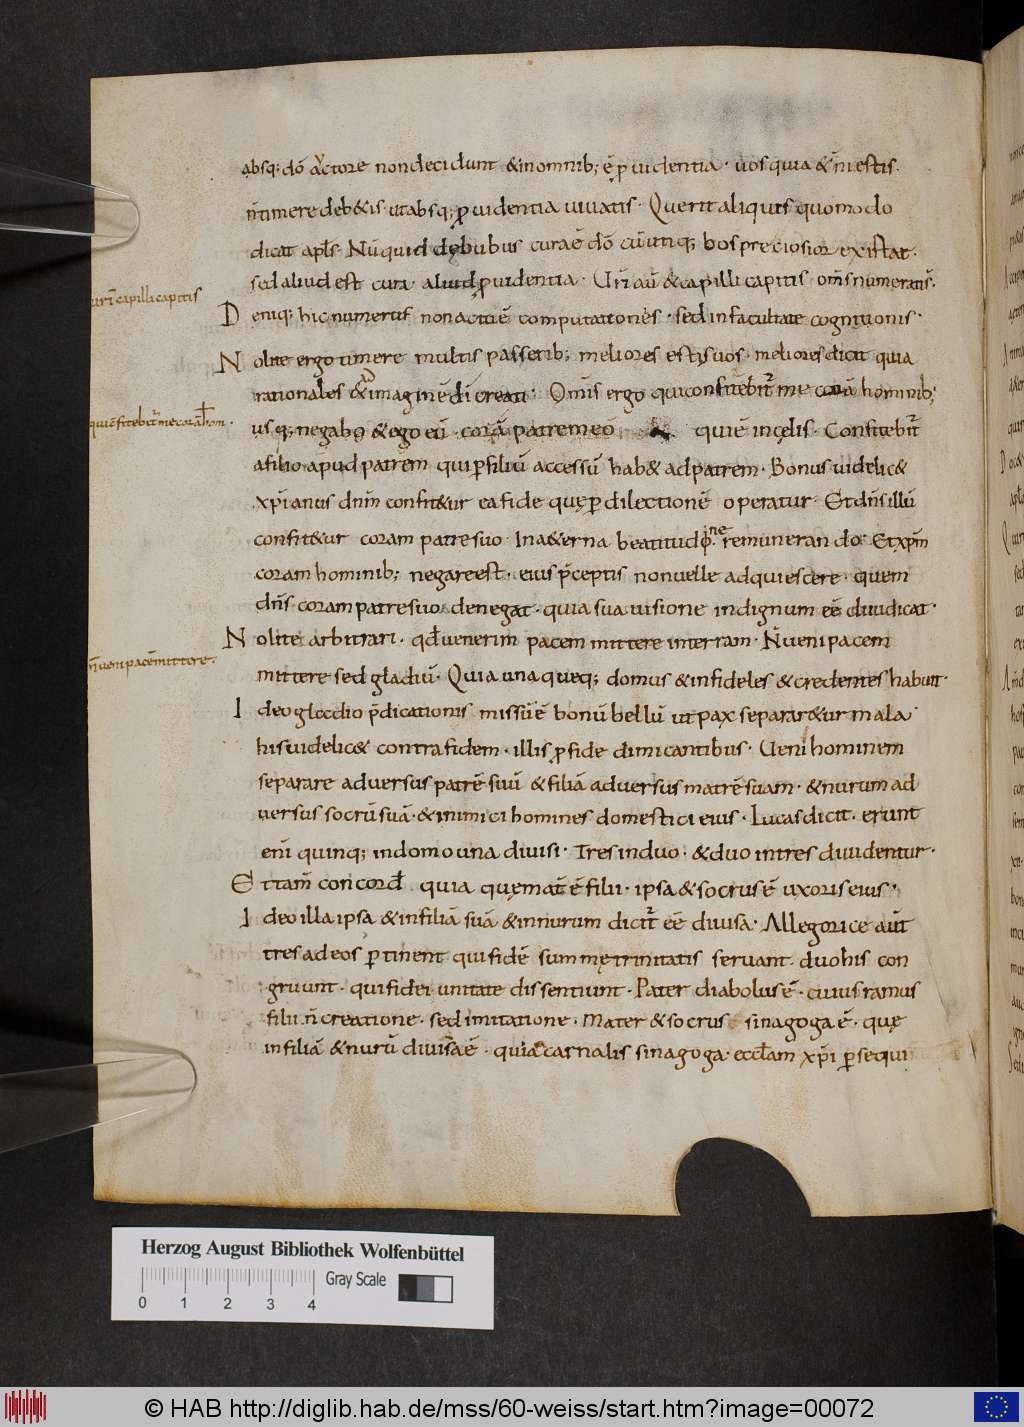 absq; dõ auctore non decidunt & in omnib; ẽ ꝓuidentia · uos quia &ñi estis.
ñ timere deb&is ut absq; ꝓuidentia uiuatis · Querit aliquis quomodo
dicat apłs · Nũquid de bubus cura ẽ dõ cũ utiq; bos preciosior existat ·
sed aliud est cura aliud ꝓuidentia · Ur̃i aũ & capilli capitis om̃s numerati s̃.
uri capilli capitis
Deniq; hic numerus non actu ẽ computationẽs · sed in facultate cognitionis ·
Nolite ergo timere multis passerib; meliores estis uos · meliores dicit quia
rationales & ad imaginẽ di creati · Om̃is ergo qui confitebit̃ me corã hominib;
qui cõfitebit̃ me corã hom̃ ·
usq; negabo & ego eũ · corã patre meo qui ẽ in cęlis · Confitebit̃
a filio apud patrem qui ꝑ filiũ accessũ hab& ad patrem · Bonus uidelic&
xp̃ianus dñm confit&ur ea fide quę ꝑ dilectionẽ operatur · Et dñs illũ
confit&ur coram patre suo · In a&erna beatitudi ne remunerando · Et xp̃m
coram hominib; negare est · eius p̃ceptis non uelle adquiescere · quem
dñs coram patre suo denegat · quia sua uisione indignum eẽ diiudicat ·
Nolite arbitrari · qđ uenerim pacem mittere in terram · Ñ ueni pacem
ñ ueni pacẽ mittere ·
mittere sed gladiũ · Quia unaqueq; domus & infideles & credentes habuit ·
Ideo gladio p̃dicationis missũ ẽ bonũ bellũ ut pax separar&ur mala
his uidelic& contra fidem · illis ꝓ fide dimicantibus · Ueni hominem
separare aduersus patrẽ suũ & filiã aduersus matrẽ suam · & nurum ad
uersus socrũ suã · & inimici homines domestici eius · Lucas dicit · erunt
eni quinq; in domo una diuisi · Tres in duo · & duo in tres diuidentur ·
Et tam̃ concorđ quia quę mat̃ ẽ filii · ipsa & socrus ẽ uxoris eius ·
Ideo illa ipsa & in filiã suã & in nurum dicit̃ eẽ diuisa · Allegorice aũt
tres ad eos ꝑtinent qui fidẽ summę trinitatis seruant · duo his con
gruunt · qui fidei unitate dissentiunt · Pater diabolus ẽ · cuius ramus
filii ñ creatione · sed imitatione · Mater & socrus sinagoga ẽ · quę
in filiã & nurũ diuisa ẽ · quia carnalis sinagoga · eccłam xp̃i ꝑsequi
Herzog August Bibliothek Wolfenbüttel
Gray Scale
0 1 2 3 4
© HAB http://diglib.hab.de/mss/60-weiss/start.htm?image=00072